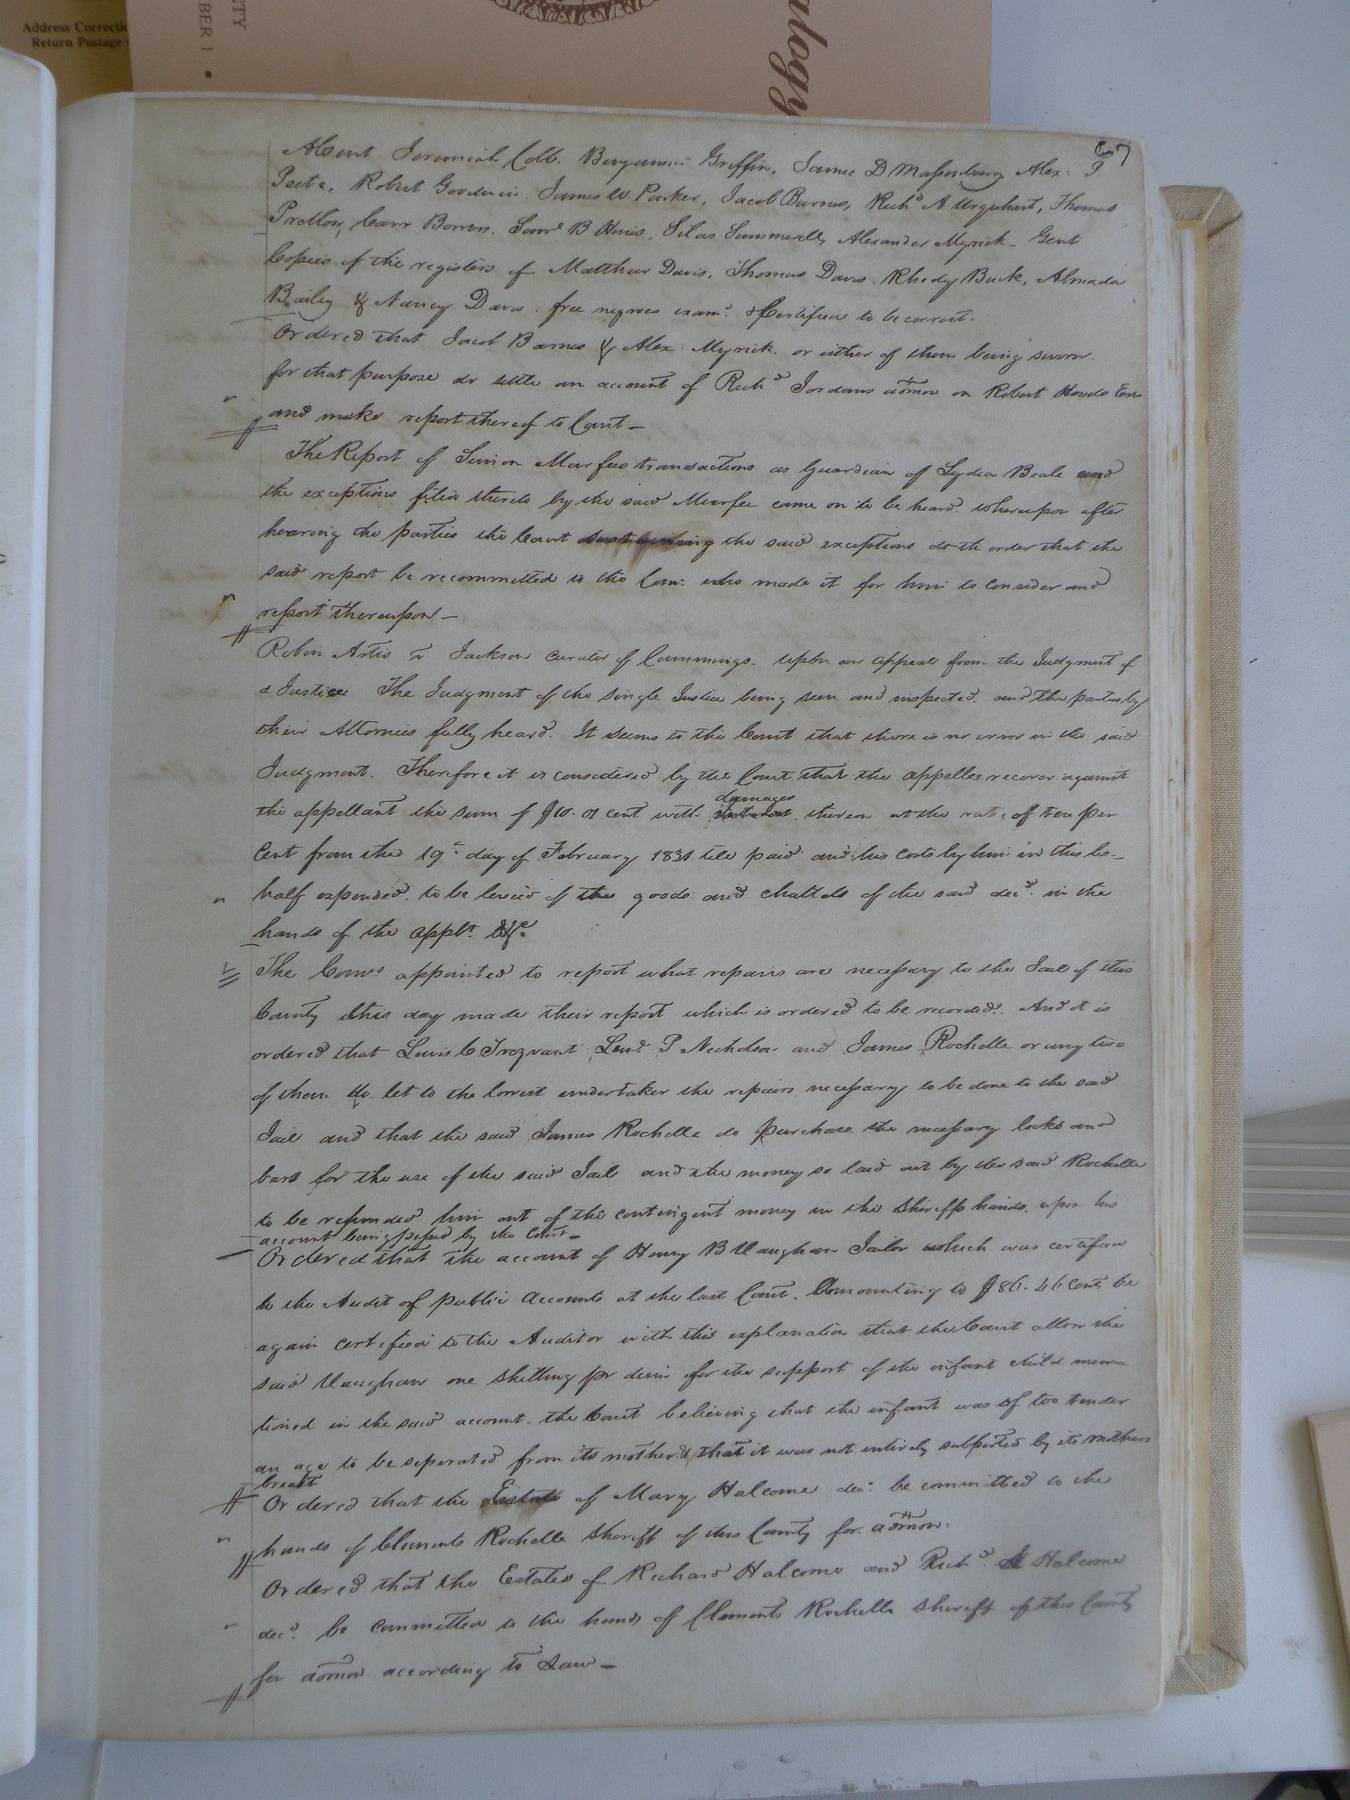 Address Correcti
Return Postage
TY
BER 1 •
alogy
67
Absent Jeremiah Cobb. Benjamin Griffin, James D Massenburg Alex: P.
Peete, Robert Goodwin James W. Parker, Jacob Barnes, Richd A Urquhart, Thomas
Pretlow, Carr Bowers. Saml B Hines, Silas Summerell, Alexander Myrick - Gent
Copies of the registers of Matthew Davis, Thomas Davis. Rhody Buck, Almada
Bailey & Nancy Davis. free negroes examd. & Certified to be correct.
Ordered that Jacob Barnes & Alex. Myrick. or either of them being sworn.
for that purpose do settle an account of Richd Jordans admon on Robert
and make report thereof to Court —
The Report of Simon Murfees transactions as Guardian of Lydia Beale and
the exceptions filed thereto by the said Murfee came on to be heard. whereupon after
hearing the parties the Court sustaining the said exceptions doth order that the
said report be recommitted to the Com: who made it for him to consider and
report thereupon —
Robin Artis v Jackson curator of Cummings. Upon an appeal from the Judgment of
a Justice The Judgment of the single Justice being seen and inspected. and the parties by
their Attornies fully heard. It seems to the Court that there is no error in the said
Judgment. Therefore it is considered by the Court that the appellee recover against
damages
the appellant the sum of $10. 01 cent with interest thereon at the rate of ten per
Cent from the 19th day of February 1831 till paid and his costs by him in this be-
half expended. to be levied of the goods and chattels of the said decd. in the
hands of the applt. &c.
The Coms appointed to report what repairs are necessary to the Jail of this
County this day made their report which is ordered to be recorded. And it is
ordered that Lewis C Trezvant P Nicholson and James Rochelle or any two
of them do. let to the lowest undertaker the repairs necessary to be done to the said
Jail and that the said James Rochelle do purchase the necessary locks and
bars for the use of the said Jail and the money so laid out by the said Rochelle
to be refunded him out of the contingent money in the Sheriffs hands. upon his
account being passed by the Court —
Ordered that the account of Henry B Vaughan Jailor which was certified
to the Audit of public Accounts at the last Court. Amounting to $86. 46 Cents be
again certified to the Auditor with this explanation that the Court allow the
said Vaughan one shilling pr diem for the support of the infant child men-
tioned in the said account. the Court believing that the infant was of too tender
an age to be seperated from its mother & that it was not entirely supported by its mothers
breast
Ordered that the Estate of Mary Halcome decd. be committed to the
hands of Clements Rochelle Sheriff of this County for admon.
Ordered that the Estates of Richard Halcome and Richd. Halcome
decd. be committed to the hands of Clements Rochelle Sheriff of this County
for admon according to Law —